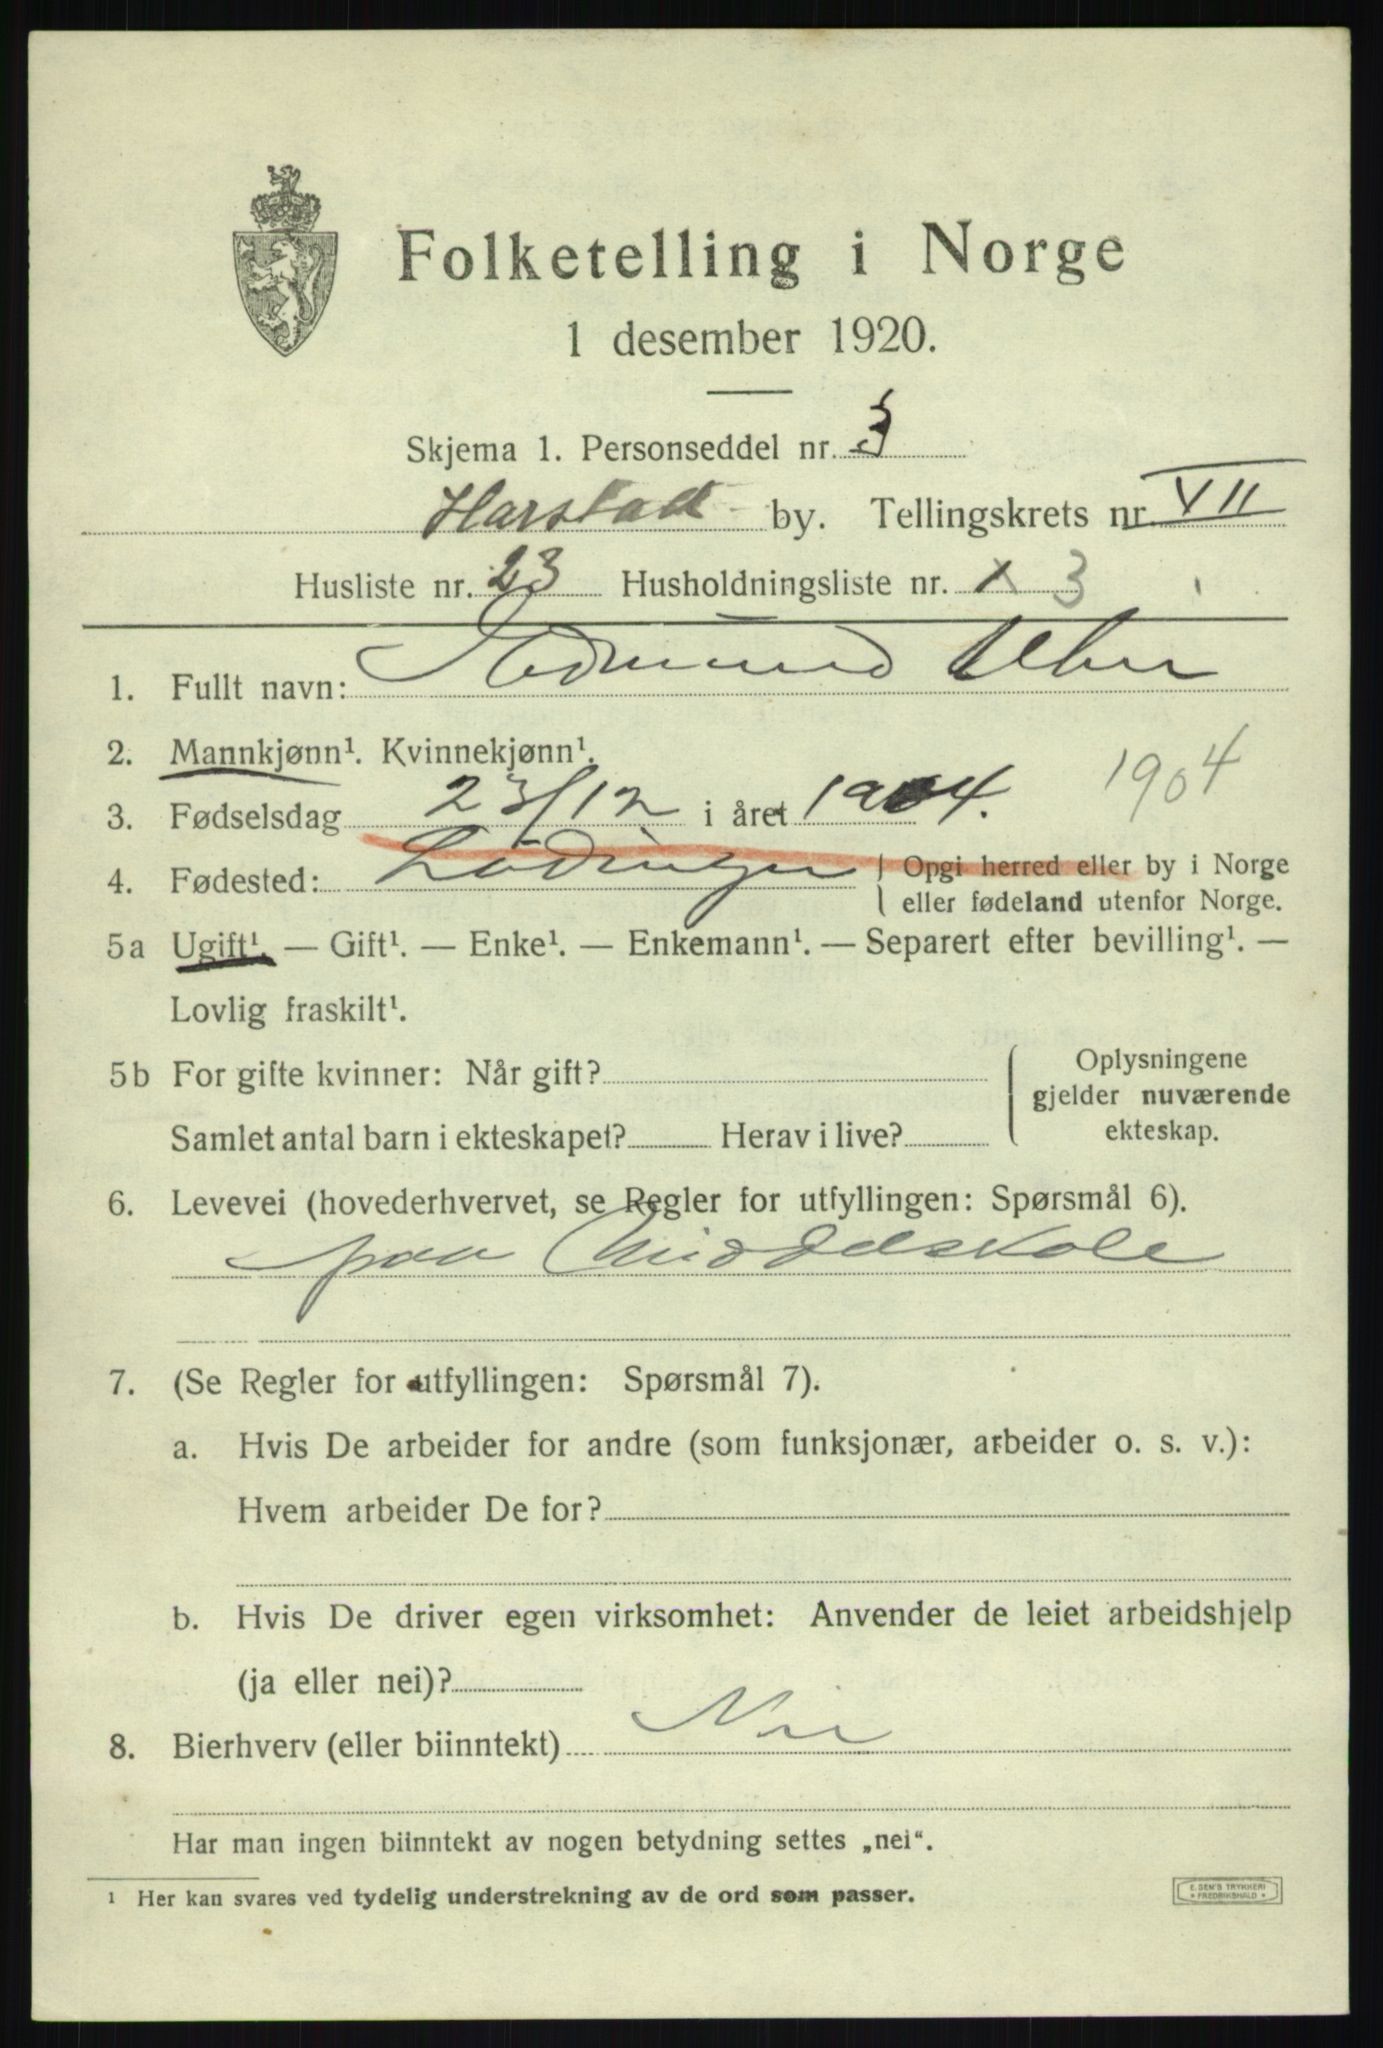 Folketelling i Norge
1 desember 1920.
Skjema 1. Personseddel nr. 3
Harstad by. Tellingskrets nr. VII
Husliste nr. 23 Husholdningsliste nr. 3
1. Fullt navn: Edmund
2. Mannkjønn¹. Kvinnekjønn¹.
3. Fødselsdag 23/12 i året 1904. 1904
4. Fødested: Lødingen { Opgi herred eller by i Norge
eller fødeland utenfor Norge.
5a Ugift¹. — Gift¹. — Enke¹. — Enkemann¹. — Separert efter bevilling¹. —
Lovlig fraskilt¹.
5b For gifte kvinner: Når gift? { Oplysningene
gjelder nuværende
Samlet antal barn i ekteskapet? Herav i live? ekteskap.
6. Levevei (hovederhvervet, se Regler for utfyllingen: Spørsmål 6).
paa Middelskole
7. (Se Regler for utfyllingen: Spørsmål 7).
a. Hvis De arbeider for andre (som funksjonær, arbeider o. s. v.):
Hvem arbeider De for?
b. Hvis De driver egen virksomhet: Anvender de leiet arbeidshjelp
(ja eller nei)?
8. Bierhverv (eller biinntekt) Nei
Har man ingen biinntekt av nogen betydning settes „nei“.
¹ Her kan svares ved tydelig understrekning av de ord som passer.
E. SEM'S TRYKKERI
• FREDRIKSHALD •